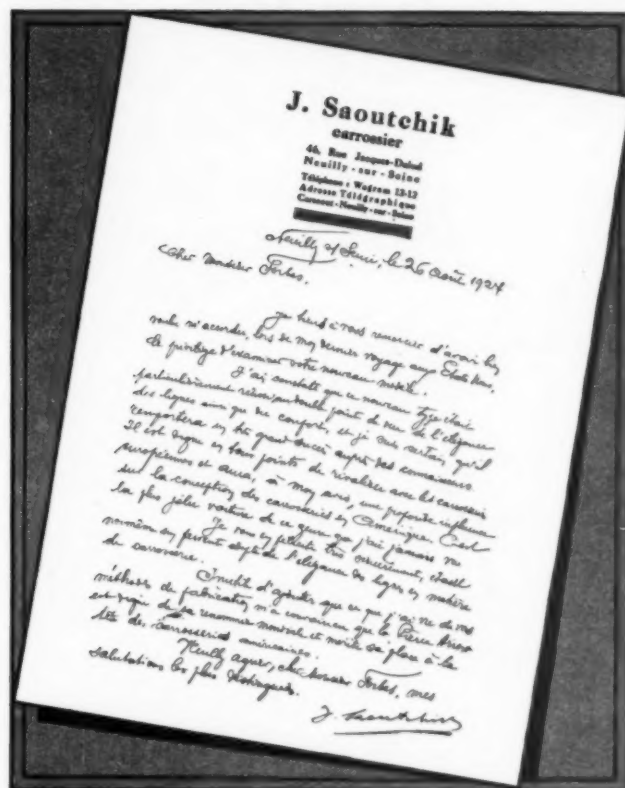 J. Saoutchik
carrossier
46, Rue Jacques-Dulud
Neuilly-sur-Seine
Téléphone : Wagram 12-12
Adresse Télégraphique
Carosout-Neuilly-sur-Seine
Neuilly s/ Seine, le 26 août 1927
Cher Monsieur Forbes,
Je tiens à vous remercier d'avoir bien
voulu m'accorder, lors de mon dernier voyage aux États Unis,
le privilège d'examiner votre nouveau modèle.
J'ai constaté que ce nouveau type était
particulièrement réussi au double point de vue de l'élégance
des lignes ainsi que du confort, et je suis certain qu'il
remportera un très grand succès auprès des connaisseurs
Il est digne en tous points de rivaliser avec les carrosseries
européennes et aura, à mon avis, une profonde influence
sur la conception des carrosseries en Amérique. C'est
la plus jolie voiture de ce genre que j'ai jamais vu
Je vous en félicite très sincèrement, étant
moi-même un fervent adepte de l'élégance des lignes en matière
de carrosserie.
Inutile d'ajouter que ce que j'ai vu de vos
méthodes de fabrication m'a convaincu que la Pierce Arrow
est digne de sa renommée mondiale et mérite sa place à la
tête des carrosseries américaines.
Veuillez agréer, cher Monsieur Forbes, mes
salutations les plus distinguées.
J. Saoutchik